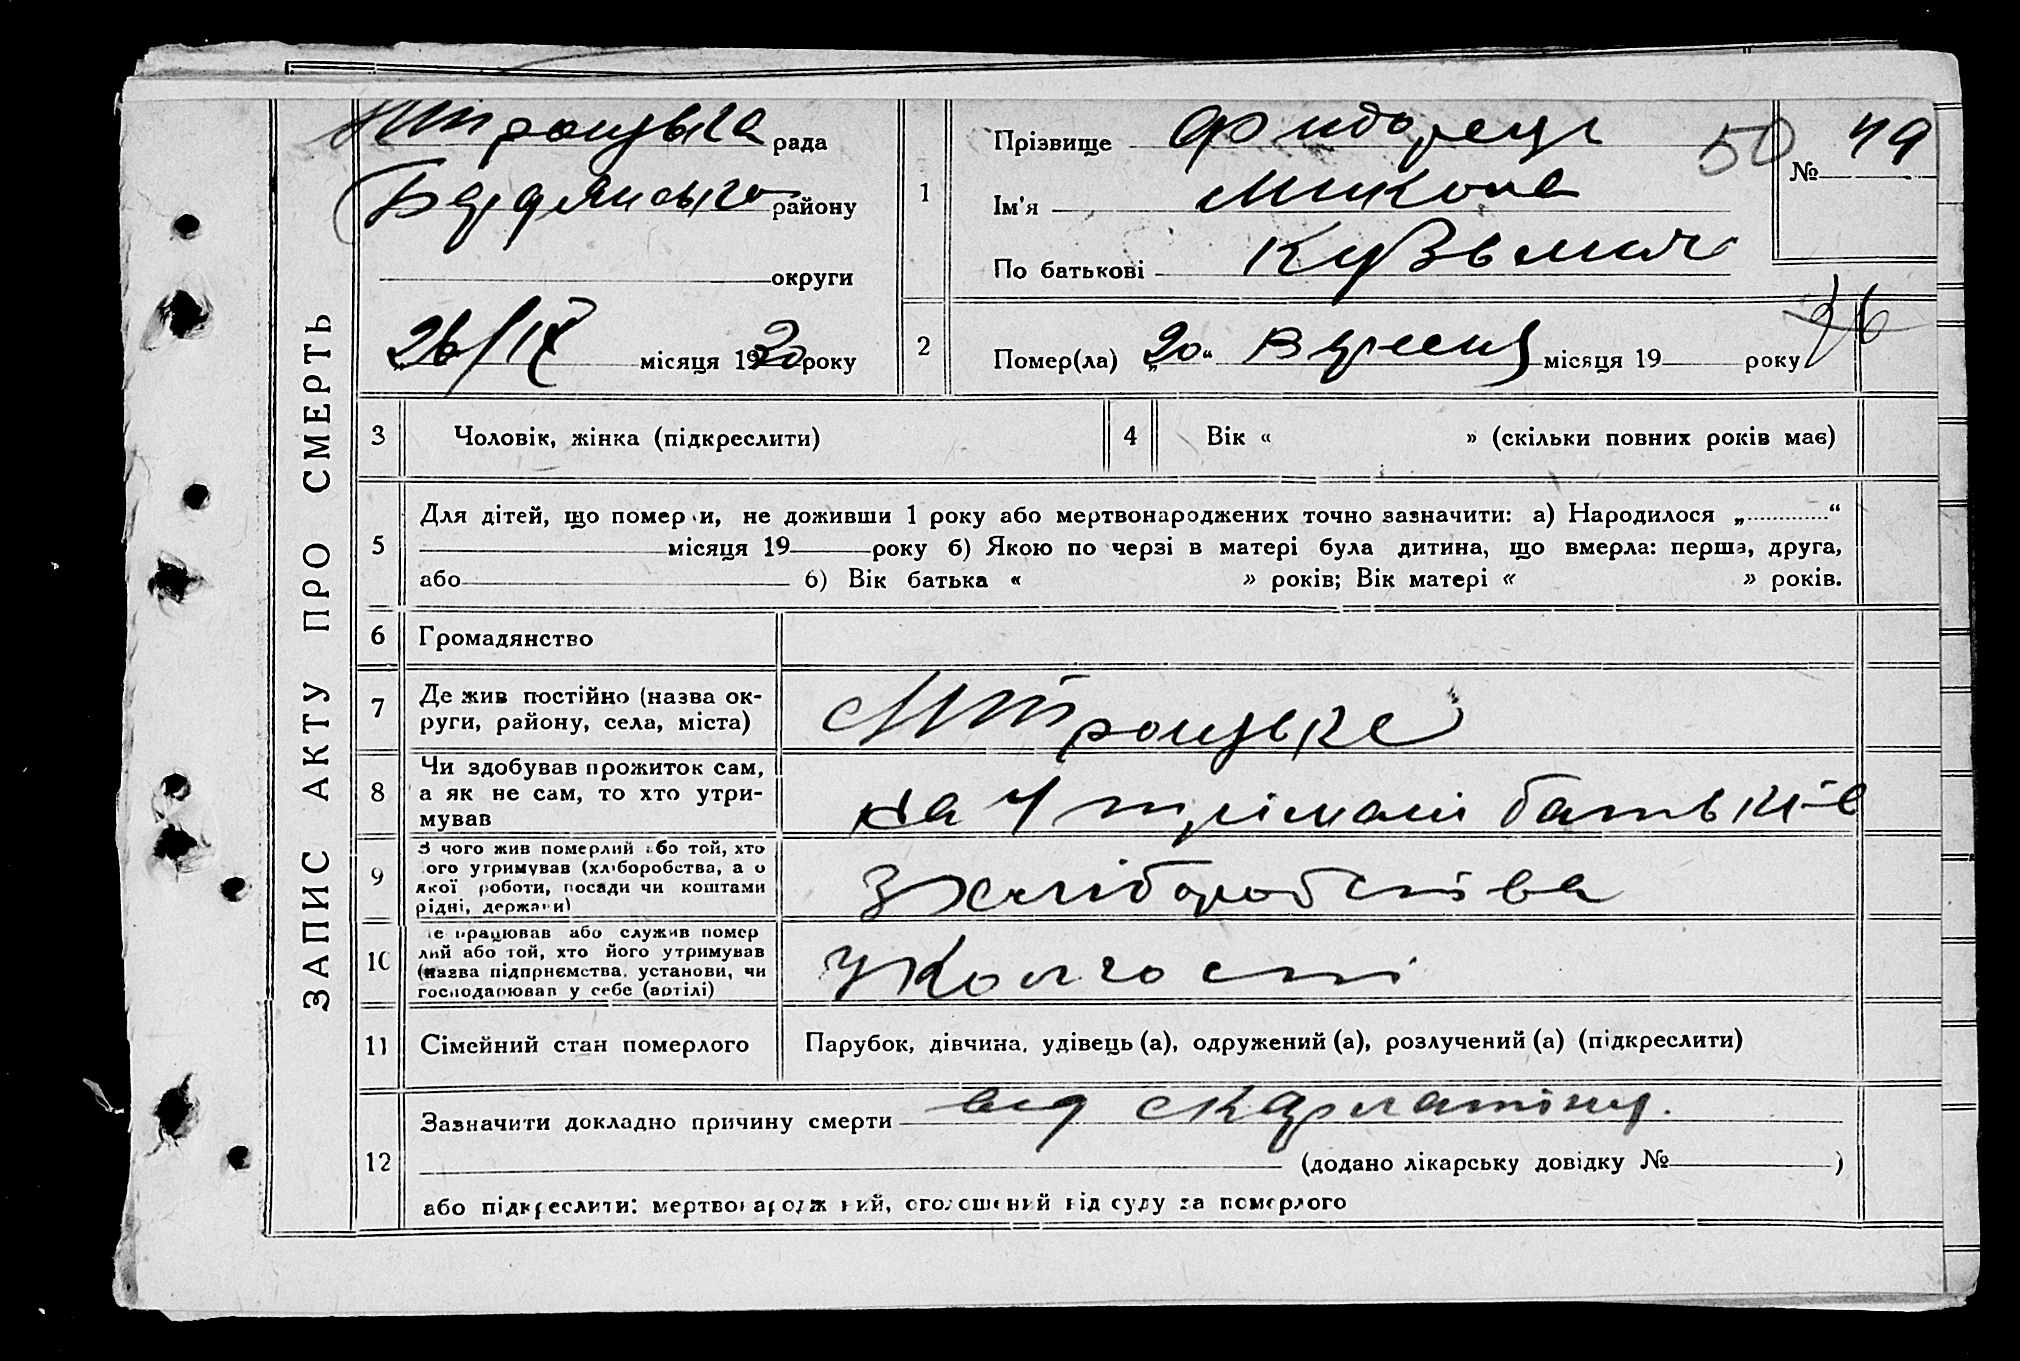 ЗАПИС АКТУ ПРО СМЕРТЬ
рада
Бердянського району
округи
26/IX місяця 1930 року
1
Прізвище Фидорець
Ім'я Микола
По батькові Кузьмич
50 № 49
2
Помер(ла) „20“ Вересня місяця 19 року
3 Чоловік, жінка (підкреслити)
4 Вік « » (скільки повних років має)
5 Для дітей, що померли, не доживши 1 року або мертвонароджених точно зазначити: а) Народилося „ “
місяця 19 року б) Якою по черзі в матері була дитина, що вмерла: перша, друга,
або б) Вік батька « » років; Вік матері « » років.
6 Громадянство
7 Де жив постійно (назва ок-
руги, району, села, міста)
8 Чи здобував прожиток сам,
а як не сам, то хто утри-
мував
на утриманні батьків
9 З чого жив померлий або той, хто
його утримував (хліборобства, а о
якої роботи, посади чи коштами
рідні, держави)
З хліборобства
10 Де працював або служив помер
лий або той, хто його утримував
(назва підприємства, установи, чи
господарював у себе (артілі)
У Колгоспі
11 Сімейний стан померлого
Парубок, дівчина, удівець (а), одружений (а), розлучений (а) (підкреслити)
12 Зазначити докладно причину смерти від скарлатини.
(додано лікарську довідку № )
або підкреслити: мертвонароджений, оголошений від суду за померлого